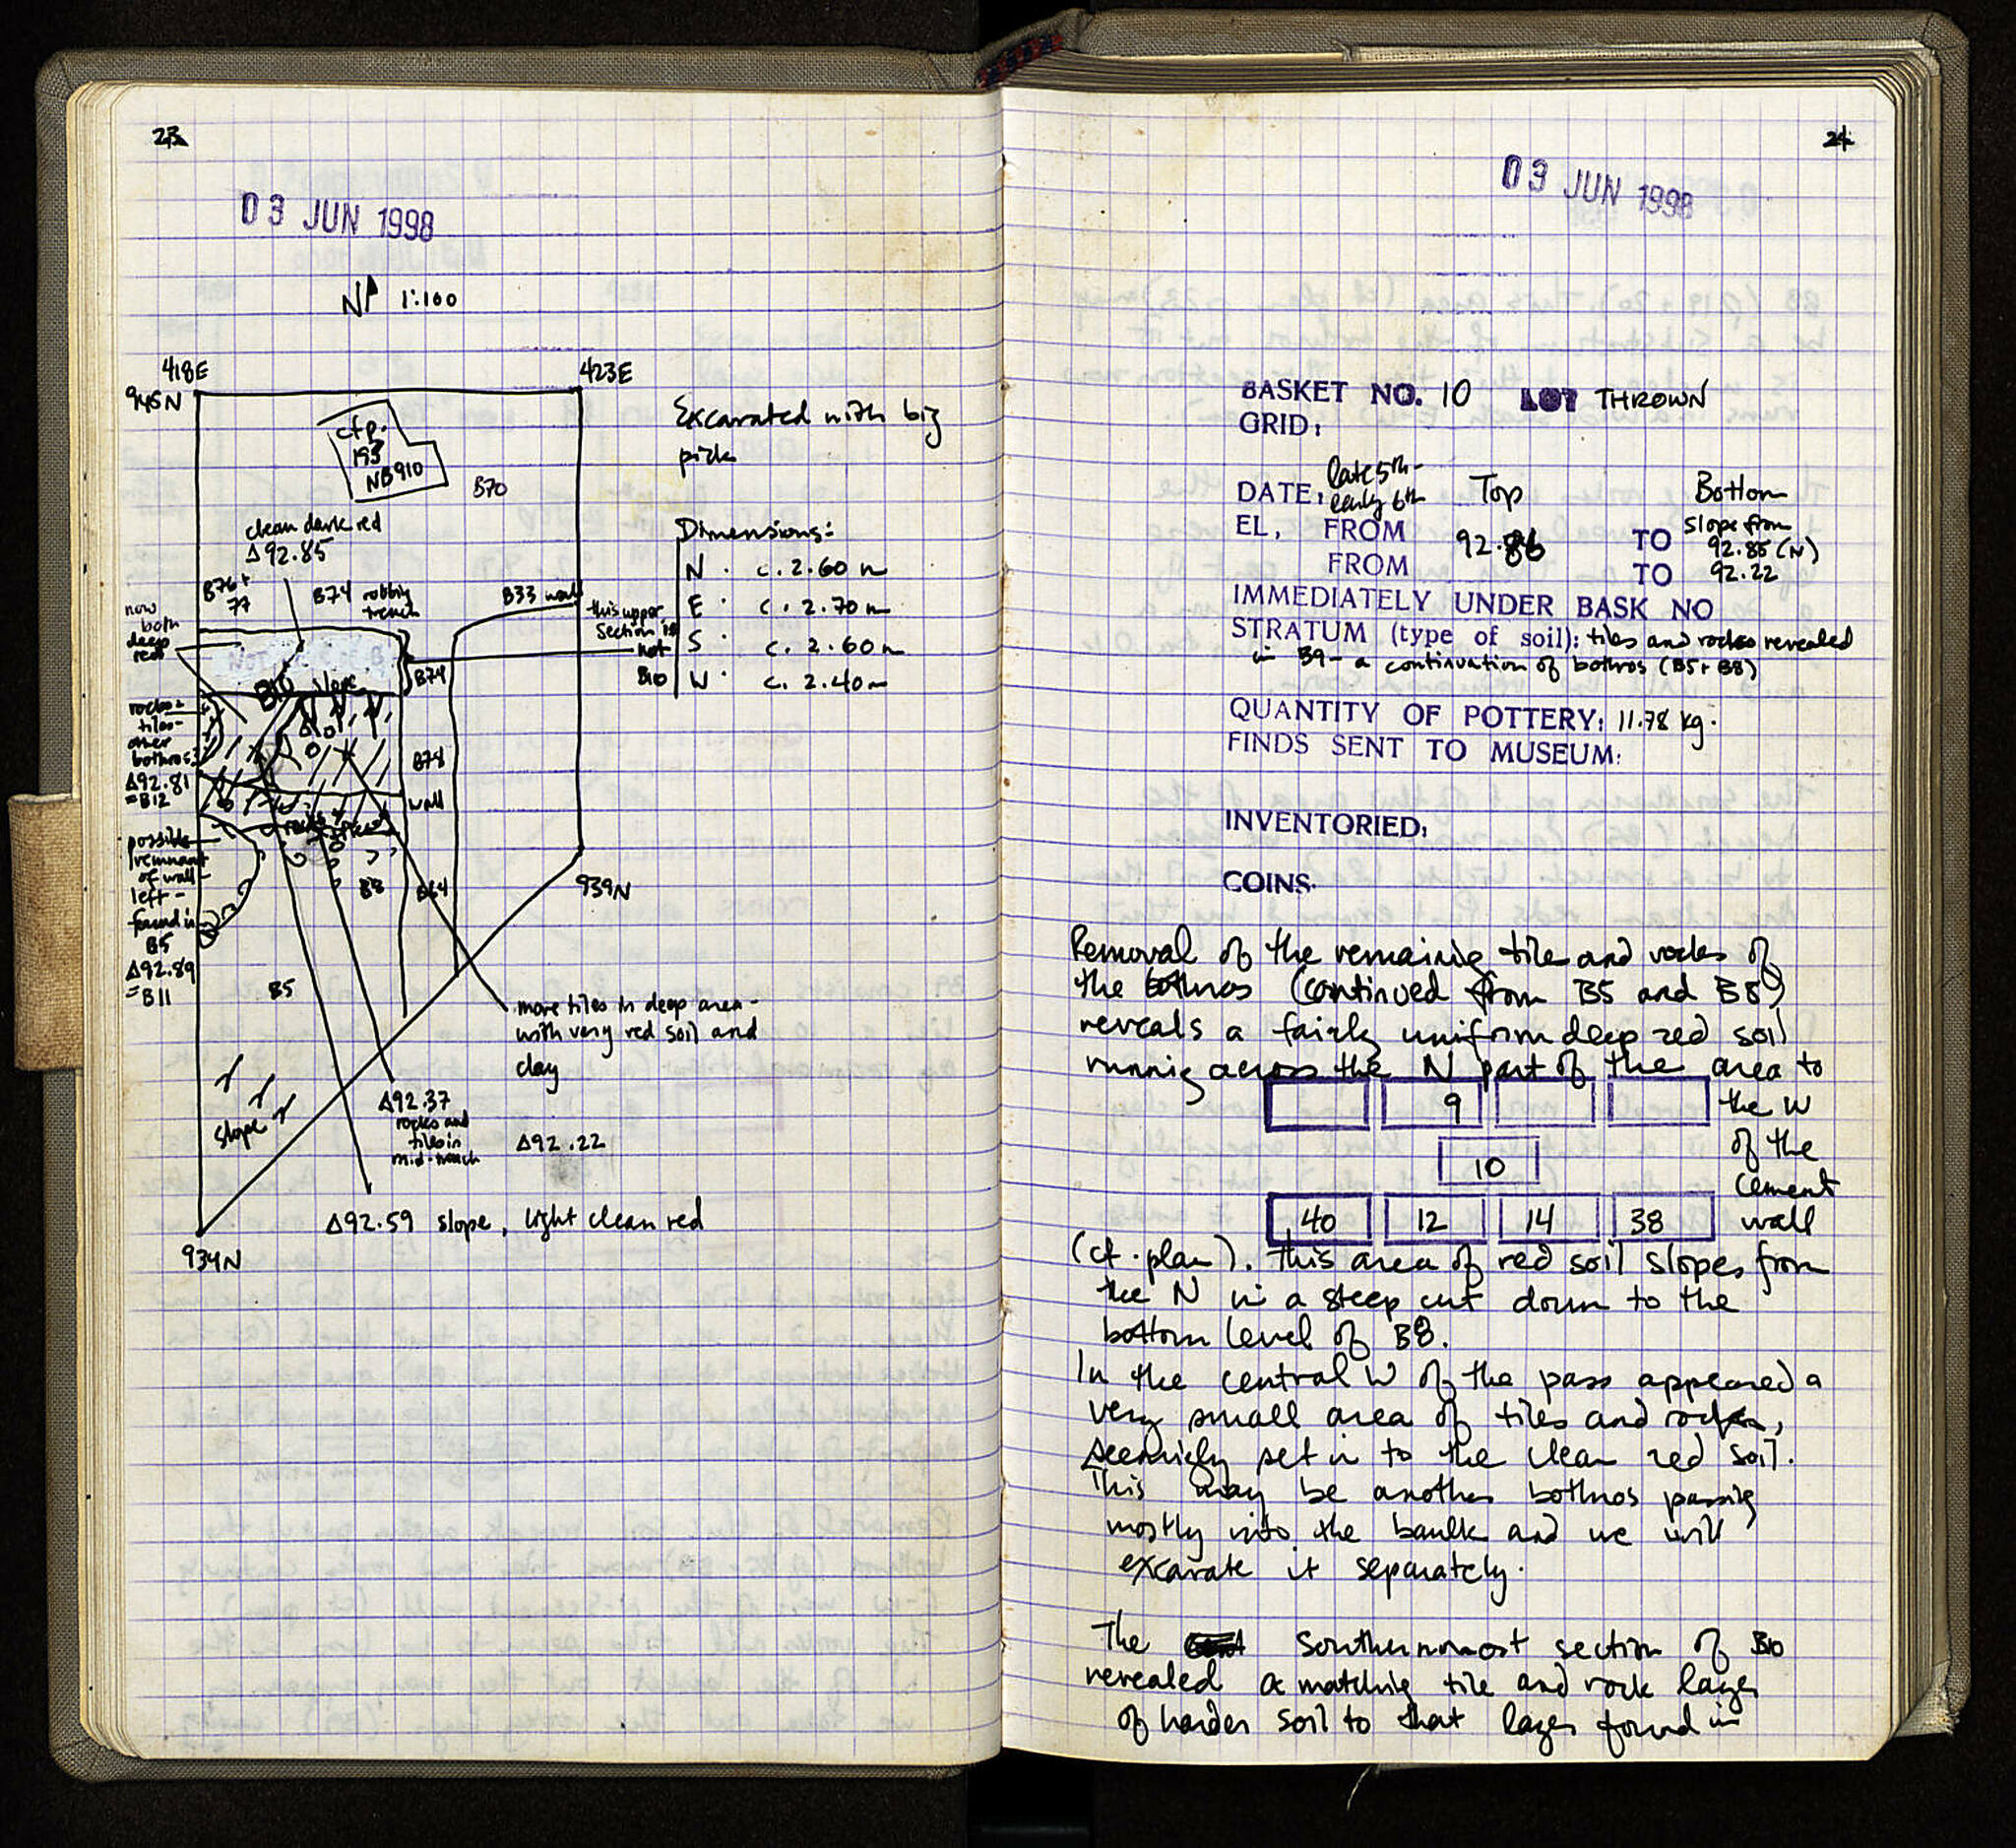 23
03 JUN 1998
N 1:100
418E
423E
945N
Excavated with big
pick
cf p.
193
NB910
B70
clean dark red
Δ92.85
B76+
77
B74 robbing
trench
B33 wall
now
both
deep
red
this upper
section is
not
B10
Dimensions:
N: c. 2.60 m
E: c. 2.70 m
S: c. 2.60 m
W: c. 2.40 m
B10 slope
B74
rocks+
tiles-
other
bothros?
Δ92.81
=B12
B74
wall
possible
remnant
of wall
left-
found in
B5
Δ92.89
=B11
B8
B64
939N
B5
more tiles in deep area-
with very red soil and
clay
slope
Δ92.37
rocks and
tiles in
mid-trench
Δ92.22
Δ92.59 slope, light clean red
934N
24
03 JUN 1998
BASKET NO. 10 LOT THROWN
GRID:
DATE: late 5th-
early 6th
Top
Bottom
EL, FROM 92.86 TO slope from
92.85 (N)
FROM TO 92.22
IMMEDIATELY UNDER BASK NO
STRATUM (type of soil): tiles and rocks revealed
in B9 - a continuation of bothros (B5+B8)
QUANTITY OF POTTERY: 11.78 kg.
FINDS SENT TO MUSEUM:
INVENTORIED:
COINS:
Removal of the remaining tile and rocks of
the bothros (continued from B5 and B8)
reveals a fairly uniform deep red soil
running across the N part of the area to
9
the W
10
of the
cement
40 12 14 38
wall
(cf. plan). This area of red soil slopes from
the N in a steep cut down to the
bottom level of B8.
In the central W of the pass appeared a
very small area of tiles and rocks,
seemingly set in to the clean red soil.
This may be another bothros passing
mostly into the baulk and we will
excavate it separately.
The southernmost section of B10
revealed a matching tile and rock layer
of harder soil to that layer found in